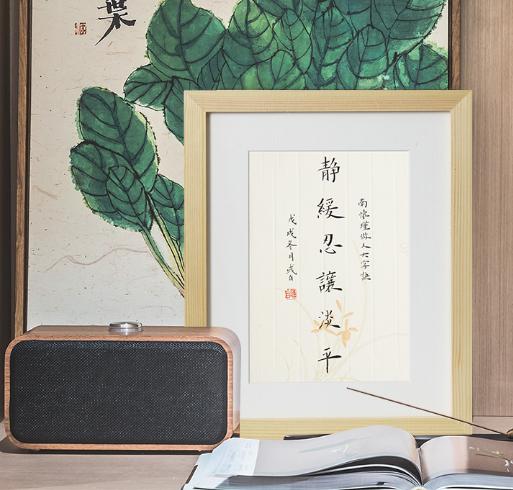 葉
南懷瑾做人六字訣
靜緩忍讓淡平
戊戌冬月武自